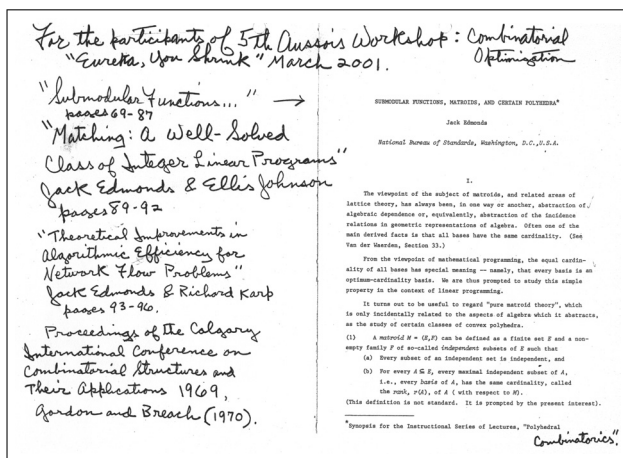 For the participants of 5th Aussois Workshop: Combinatorial
"Eureka, You Shrink" March 2001. Optimization
"Submodular Functions..." →
pages 69-87
"Matching: A Well-Solved
Class of Integer Linear Programs"
Jack Edmonds & Ellis Johnson
pages 89-92
"Theoretical Improvements in
Algorithmic Efficiency for
Network Flow Problems"
Jack Edmonds & Richard Karp
pages 93-96.
Proceedings of the Calgary
International Conference on
Combinatorial Structures and
Their Applications 1969,
Gordon and Breach (1970).
SUBMODULAR FUNCTIONS, MATROIDS, AND CERTAIN POLYHEDRA*
Jack Edmonds
National Bureau of Standards, Washington, D.C., U.S.A.
I.
The viewpoint of the subject of matroids, and related areas of
lattice theory, has always been, in one way or another, abstraction of
algebraic dependence or, equivalently, abstraction of the incidence
relations in geometric representations of algebra. Often one of the
main derived facts is that all bases have the same cardinality. (See
Van der Waerden, Section 33.)
From the viewpoint of mathematical programming, the equal cardin-
ality of all bases has special meaning -- namely, that every basis is an
optimum-cardinality basis. We are thus prompted to study this simple
property in the context of linear programming.
It turns out to be useful to regard "pure matroid theory", which
is only incidentally related to the aspects of algebra which it abstracts,
as the study of certain classes of convex polyhedra.
(1) A matroid M = (E,F) can be defined as a finite set E and a non-
empty family F of so-called independent subsets of E such that
(a) Every subset of an independent set is independent, and
(b) For every A ⊆ E, every maximal independent subset of A,
i.e., every basis of A, has the same cardinality, called
the rank, r(A), of A (with respect to M).
(This definition is not standard. It is prompted by the present interest).
*Synopsis for the Instructional Series of Lectures, "Polyhedral
Combinatorics".